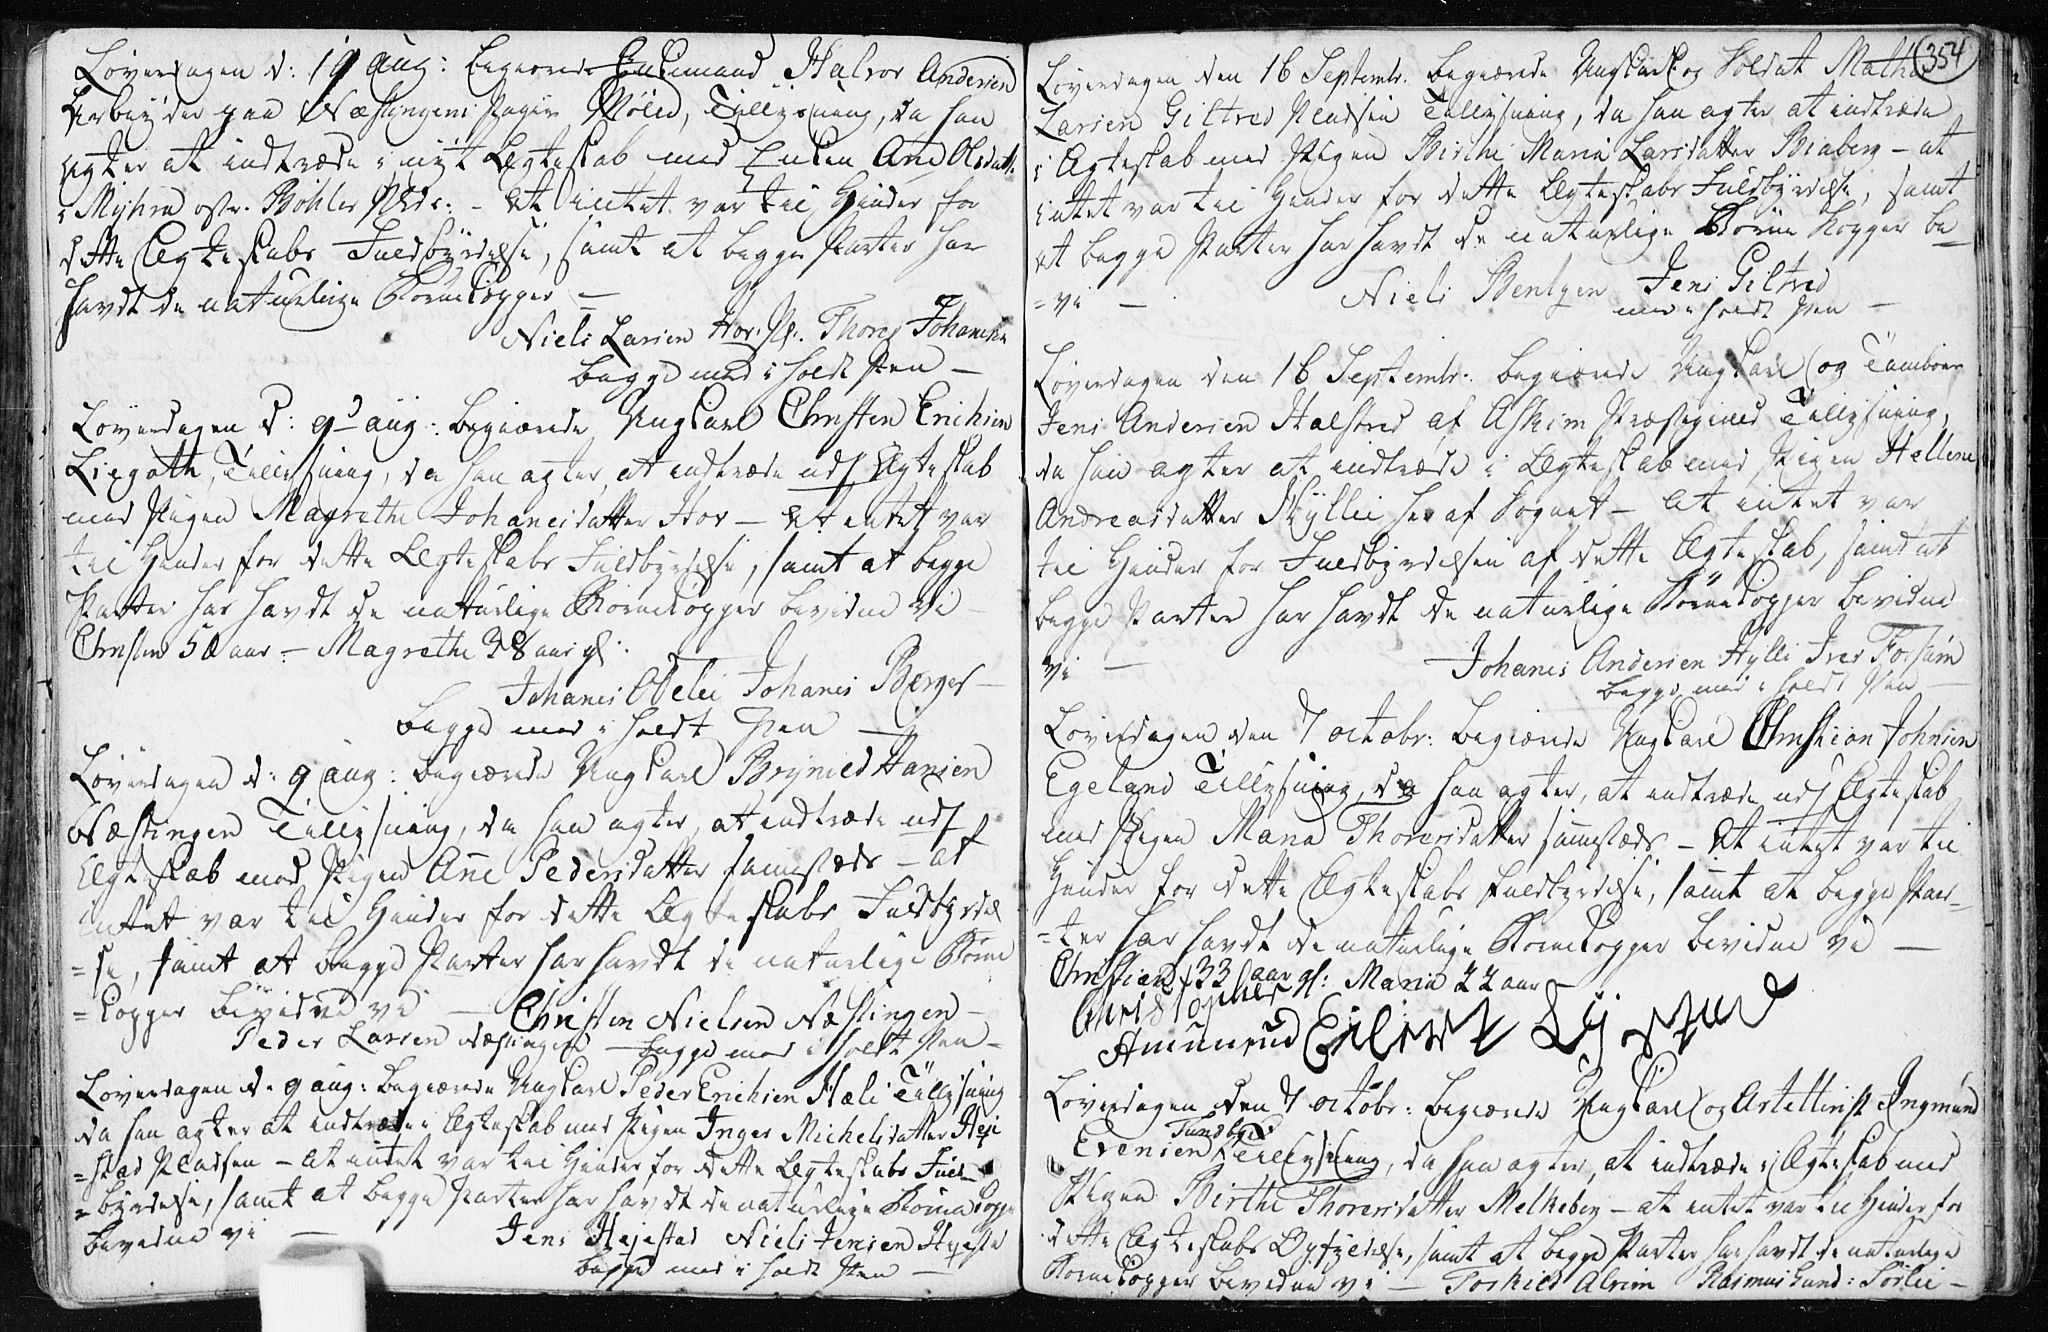 Løverdagen d: 19 aug: begierede Enkemand Halvor Andersen
Arbeyder paa Næstingens Papiir Mølle, Tillysning, da han
agter at indtræde i nyt Ægteskab med Enken Ane Olsdatt:
i Myhra østr. Bøhler Plds: - At intet var til Hinder for
dette Ægteskabs Fuldbyrdelse, samt at begge Parter har
havdt de naturlige Børnekopper -
Niels Larsen Hov. Pl. Thorej Johansen
begge med i holdt Pen -
Løverdagen d: 9d aug: begierede Ungkarl Christen Erichsen
Liegoth, Tillysning, da han agter, at indtræde udj Ægteskab
med Pigen Magrethe Johanesdatter Hov - At intet var
til Hinder for dette Ægteskabs Fuldbyrdelse, samt at begge
Parter har havdt de naturlige Børnekopper bevidne vi
Christen 50 aar - Magrethe 38 aar gl:
Johanes Ødelei Johanes Berger -
begge med i holdt Pen -
Løverdagen d: 9 aug: begierede Ungkarl Brynild Hansen
Næstingen Tillysning, da han agter, at indtræde udj
Ægteskab med Pigen Ane Pedersdatter sammesteds - at
intet var til Hinder for dette Ægteskabs Fuldbyrdel
=se, samt at begge Parter har havdt de naturlige Børne
=kopper bevidne vi - Christen Nielsen Næstingen -
Peder Larsen Næstingen - begge med i holdt Pen -
Løverdagen d. 9 aug: begierede Ungkarl Peder Erichsen Hæli Tillysning
da han agter at indtræde i Ægteskab med Pigen Inger Michelsdatter Heje
=stad Pladsen - at intet var til Hinder for dette Ægteskabs Fuld
=byrdelse, samt at begge Parter har havdt de naturlige Børnekopper
bevidne vi - Jens Hejestad Niels Jensen Hejestad
begge med i holdt Pen -
354
Løverdagen den 16 Septembr. begierede Ungkarl og Soldat Mathis
Larsen Giltved Pladsen Tillysning, da han agter at indtræde
i Ægteskab med Pigen Birthe Maria Larsdatter Biaberg - at
intet var til Hinder for dette Ægteskabs Fuldbyrdelse, samt
at begge Parter har havdt de naturlige Børne Kopper be
=vi - Niels Bentzen Jens Giltved
med i holdt Pen -
Løverdagen den 16 Septembr. begierede Ungkarl (og Tambour
Jens Andersen Halstved af Askim Præstegield Tillysning,
da han agter at indtræde i Ægteskab med Pigen Hellene
Andreasdatter Hyllie her af Sognet - At intet var
til Hinder for Fuldbyrdelsen af dette Ægteskab, samt at
begge Parter har havdt de naturlige Børnekopper bevidne
vi - Johanes Andersen Hylli Iver Fossum
begge med i holdt Pen -
Løverdagen den 7 octobr: begierede Ungkarl Christian Johnsen
Egeland Tillysning, da han agter, at indtræde udj Ægteskab
med Pigen Maria Thoresdatter sammesteds - At intet var til
Hinder for dette Ægteskabs Fuldbyrdelse, samt at begge Par=
=ter har havdt de naturlige Børnekopper bevidne vi -
Christian 33 aar gl: Maria 22 aar
Christopher
Amunrud Eilert
Løverdagen den 7 octobr: begierede Ungkarl (og Artellerist Ingmund
Tundbye
Evensen Tillysning, da han agter, at indtræde i Ægteskab med
Pigen Birthe Thoresdatter Melheberg - at intet var til Hinder for
dette Ægteskabs Opfyldelse, samt at begge Parter har havdt de naturlige
Børnekopper bevidne vi - Torkild Alvim Rasmus Sørlie -